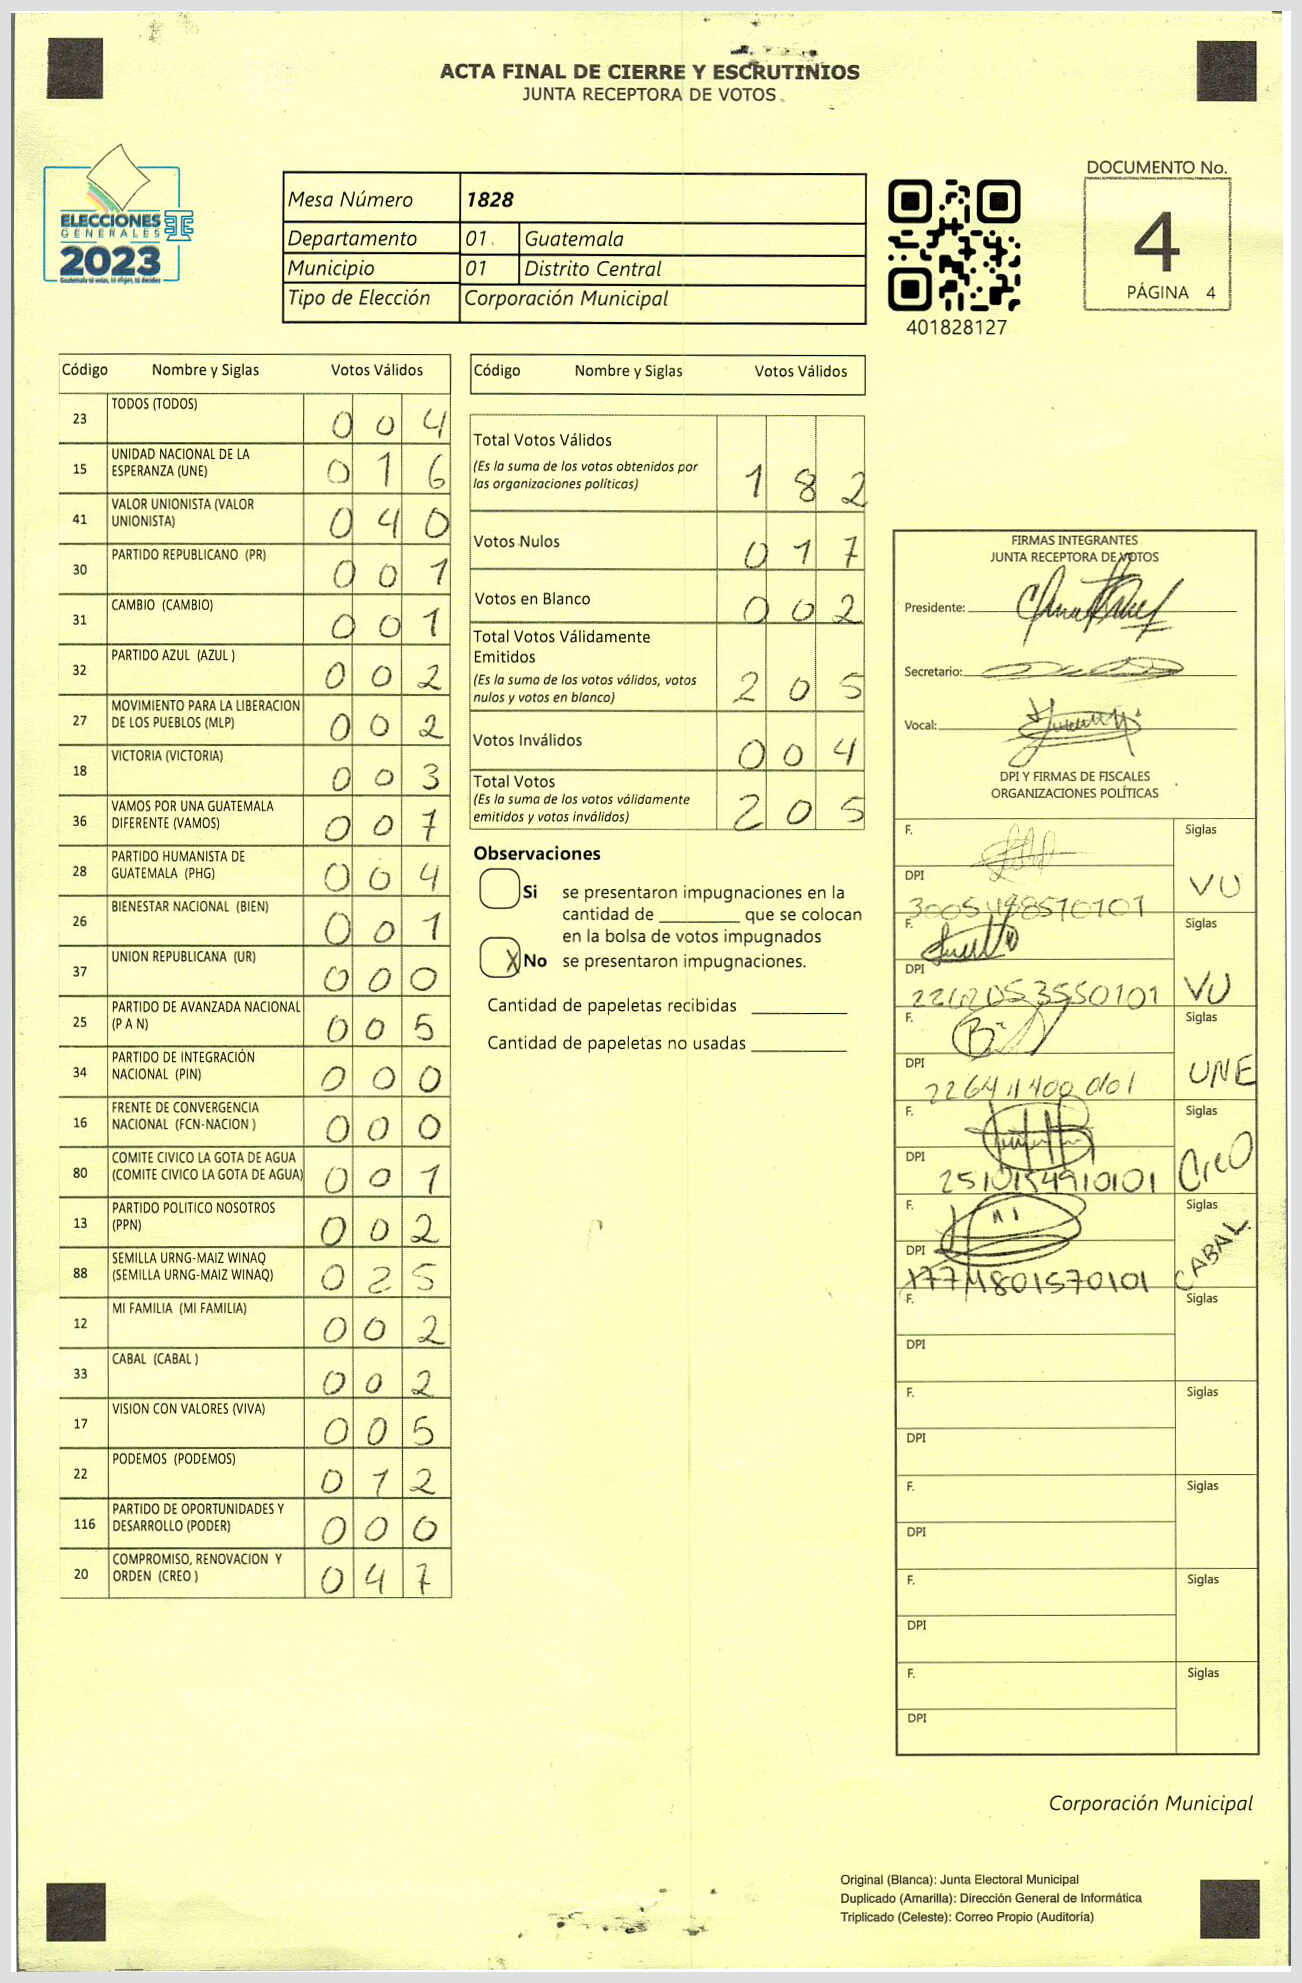 ACTA FINAL DE CIERRE Y ESCRUTINIOS
JUNTA RECEPTORA DE VOTOS
ELECCIONES
GENERALES
2023
Mesa Número 1828
Departamento 01 Guatemala
Municipio 01 Distrito Central
Tipo de Elección Corporación Municipal
401828127
DOCUMENTO No.
4
PÁGINA 4
Código Nombre y Siglas Votos Válidos
23 TODOS (TODOS) 0 0 4
15 UNIDAD NACIONAL DE LA
ESPERANZA (UNE) 0 1 6
41 VALOR UNIONISTA (VALOR
UNIONISTA) 0 4 0
30 PARTIDO REPUBLICANO (PR) 0 0 1
31 CAMBIO (CAMBIO) 0 0 1
32 PARTIDO AZUL (AZUL ) 0 0 2
27 MOVIMIENTO PARA LA LIBERACION
DE LOS PUEBLOS (MLP) 0 0 2
18 VICTORIA (VICTORIA) 0 0 3
36 VAMOS POR UNA GUATEMALA
DIFERENTE (VAMOS) 0 0 7
28 PARTIDO HUMANISTA DE
GUATEMALA (PHG) 0 0 4
26 BIENESTAR NACIONAL (BIEN) 0 0 1
37 UNION REPUBLICANA (UR) 0 0 0
25 PARTIDO DE AVANZADA NACIONAL
(P A N) 0 0 5
34 PARTIDO DE INTEGRACIÓN
NACIONAL (PIN) 0 0 0
16 FRENTE DE CONVERGENCIA
NACIONAL (FCN-NACION ) 0 0 0
80 COMITE CIVICO LA GOTA DE AGUA
(COMITE CIVICO LA GOTA DE AGUA) 0 0 1
13 PARTIDO POLITICO NOSOTROS
(PPN) 0 0 2
88 SEMILLA URNG-MAIZ WINAQ
(SEMILLA URNG-MAIZ WINAQ) 0 2 5
12 MI FAMILIA (MI FAMILIA) 0 0 2
33 CABAL (CABAL ) 0 0 2
17 VISION CON VALORES (VIVA) 0 0 5
22 PODEMOS (PODEMOS) 0 1 2
116 PARTIDO DE OPORTUNIDADES Y
DESARROLLO (PODER) 0 0 0
20 COMPROMISO, RENOVACION Y
ORDEN (CREO ) 0 4 7
Código Nombre y Siglas Votos Válidos
Total Votos Válidos
(Es la suma de los votos obtenidos por
las organizaciones políticas) 1 8 2
Votos Nulos 0 1 7
Votos en Blanco 0 0 2
Total Votos Válidamente
Emitidos
(Es la suma de los votos válidos, votos
nulos y votos en blanco) 2 0 5
Votos Inválidos 0 0 4
Total Votos
(Es la suma de los votos válidamente
emitidos y votos inválidos) 2 0 5
Observaciones
Si se presentaron impugnaciones en la
cantidad de ________ que se colocan
en la bolsa de votos impugnados
X No se presentaron impugnaciones.
Cantidad de papeletas recibidas
Cantidad de papeletas no usadas
FIRMAS INTEGRANTES
JUNTA RECEPTORA DE VOTOS
Presidente:
Secretario:
Vocal:
DPI Y FIRMAS DE FISCALES
ORGANIZACIONES POLÍTICAS
F. Siglas
DPI VU
F. Siglas
DPI VU
F. Siglas
DPI UNE
F. Siglas
DPI 2510154910101 CreO
F. Siglas
DPI CABAL
F. Siglas
DPI
F. Siglas
DPI
F. Siglas
DPI
F. Siglas
DPI
F. Siglas
DPI
Corporación Municipal
Original (Blanca): Junta Electoral Municipal
Duplicado (Amarilla): Dirección General de Informática
Triplicado (Celeste): Correo Propio (Auditoría)